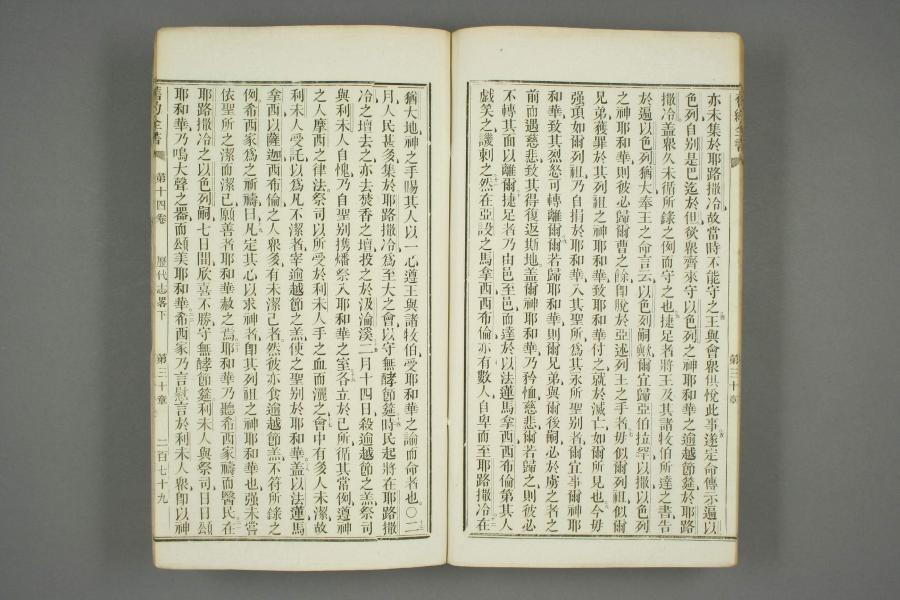 亦未集於耶路撒冷故當時不能守之王與會眾俱悅此事遂定命傳示遍以
色列自別是巴迄於但俾眾齊來守以色列之神耶和華之逾越節筵於耶路
撒冷蓋眾久未循所錄之例而守之也捷足者將王及其諸牧伯所達之書告
於遍以色列猶大奉王之命言云以色列嗣歟爾宜歸亞伯拉罕以撒以色列
之神耶和華則彼必歸爾曹之餘卽脫於亞述列王之手者毋似爾列祖似爾
兄弟獲罪於其列祖之神耶和華致耶和華付之就於滅亡如爾所見也今毋
强項如爾列祖乃自捐於耶和華入其聖所爲其永所聖別者爾宜事爾神耶
和華致其烈怒可轉離爾爾若歸耶和華則爾兄弟與爾後嗣必於虜之者之
前而遇慈悲致其得復返斯地蓋爾神耶和華乃矜恤慈悲爾若歸之則彼必
不轉其面以離爾捷足者乃由邑至邑而達於以法蓮馬拿西西布倫第其人
戲笑之譏刺之然在亞設之馬拿西西布倫亦有數人自卑而至耶路撒冷在
猶大地神之手賜其人以一心遵王與諸牧伯受耶和華之諭而命者也〇二
月人民甚多集於耶路撒冷爲至大之會以守無酵節筵時民起將在耶路撒
冷之壇去之亦去焚香之壇投之於汲淪溪二月十四日殺逾越節之羔祭司
與利未人自愧乃自聖別携燔祭入耶和華之室各立於己所循其當例遵神
之人摩西之律法祭司以所受於利未人手之血而灑之會中有多人未潔故
利未人受託以爲凡不潔者宰逾越節之羔使之聖別於耶和華蓋以法蓮馬
拿西以薩迦西布倫之人眾多有未潔己者然彼亦食逾越節羔不符所錄之
例希西家爲之祈禱曰凡定其心以求神者卽其列祖之神耶和華也强未嘗
依聖所之潔而潔己願善者耶和華赦之焉耶和華乃聽希西家禱而醫民在
耶路撒冷之以色列嗣七日間欣喜不勝守無酵節筵利未人與祭司日日頌
耶和華乃鳴大聲之器而頌美耶和華希西家乃言慰言於利未人眾卽以神
舊約全書
第十四卷
歷代志畧下
第三十章
二百七十九
第三十章